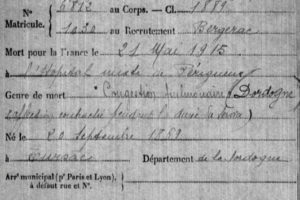 Nº 6812 au Corps. — Cl. 1889
Matricule. 1030 au Recrutement Bergerac
Mort pour la France le 21 Mai 1915
à l'Hôpital mixte de Périgueux
Genre de mort "Congestion pulmonaire" Dordogne
contractée pendant la durée du
Né le 20 Septembre
à Tursac Département de la Dordogne
Arrt municipal (pr Paris et Lyon),
à défaut rue et Nº.